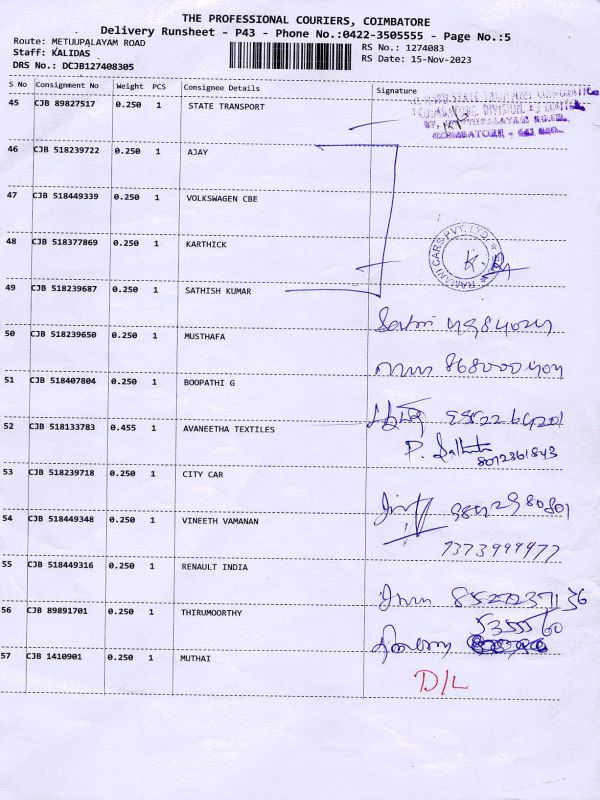 THE PROFESSIONAL COURIERS, COIMBATORE
Delivery Runsheet - P43 - Phone No.:0422-3505555 - Page No.:5
Route: METUUPALAYAM ROAD
Staff: KALIDAS
DRS No.: DCJB127408305
RS No.: 1274083
RS Date: 15-Nov-2023
S No Consignment No Weight PCS Consignee Details Signature
45 CJB 89827517 0.250 1 STATE TRANSPORT
COIMBATORE - 641
46 CJB 518239722 0.250 1 AJAY
47 CJB 518449339 0.250 1 VOLKSWAGEN CBE
48 CJB 518377869 0.250 1 KARTHICK
RAMANI CARS PVT. LTD.
49 CJB 518239687 0.250 1 SATHISH KUMAR
50 CJB 518239650 0.250 1 MUSTHAFA
51 CJB 518407804 0.250 1 BOOPATHI G
52 CJB 518133783 0.455 1 AVANEETHA TEXTILES
8072361843
53 CJB 518239718 0.250 1 CITY CAR
54 CJB 518449348 0.250 1 VINEETH VAMANAN
7373999977
55 CJB 518449316 0.250 1 RENAULT INDIA
56 CJB 89891701 0.250 1 THIRUMOORTHY
535550
57 CJB 1410901 0.250 1 MUTHAI
D/L